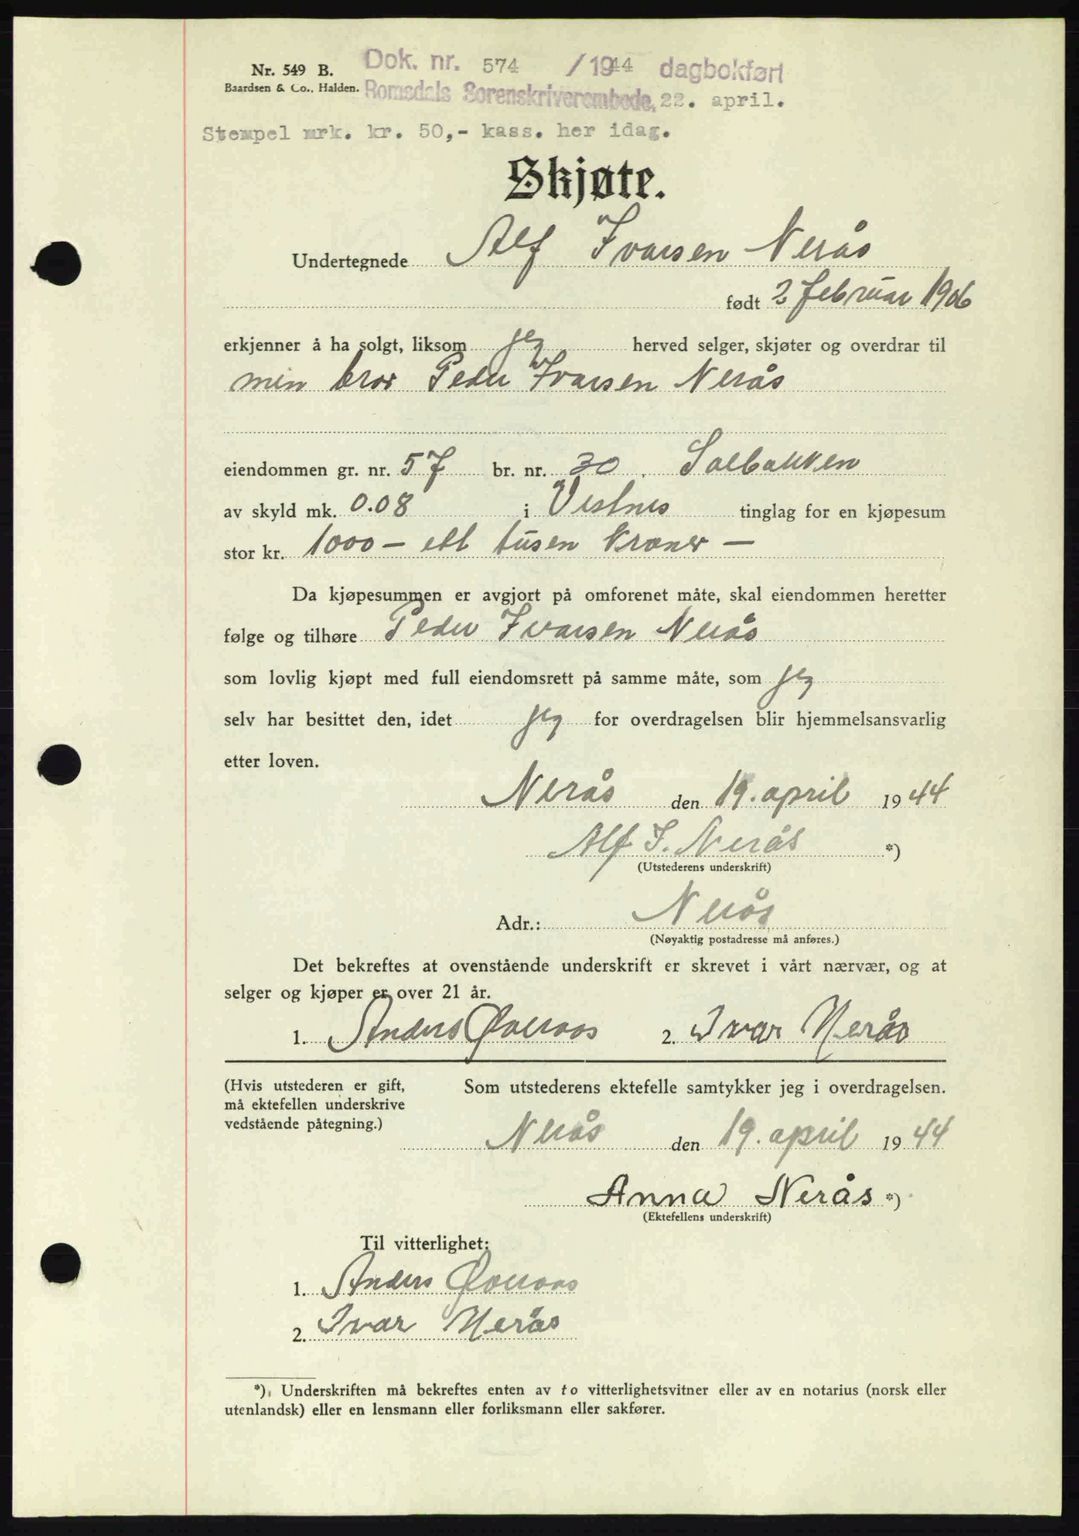 Nr. 549 B.
Baardsen & Co., Halden.
Dok. nr. 574 /1944 dagbokført
Romsdals Sorenskriverembede, 22. april.
Stempel mrk. kr. 50,- kass. her idag.
Skjøte.
Undertegnede Alf Ivarsen Nerås
født 2 februar 1906
erkjenner å ha solgt, liksom jeg herved selger, skjøter og overdrar til
min bror Peder Ivarsen Nerås
eiendommen gr. nr. 57 br. nr. 30, Solbakken
av skyld mk. 0.08 i Vestnes tinglag for en kjøpesum
stor kr. 1000 – ett tusen kroner –
Da kjøpesummen er avgjort på omforenet måte, skal eiendommen heretter
følge og tilhøre Peder Ivarsen Nerås
som lovlig kjøpt med full eiendomsrett på samme måte, som jeg
selv har besittet den, idet jeg for overdragelsen blir hjemmelsansvarlig
etter loven.
Nerås den 19. april 1944
Alf I. Nerås *)
(Utstederens underskrift)
Adr.: Nerås
(Nøyaktig postadresse må anføres.)
Det bekreftes at ovenstående underskrift er skrevet i vårt nærvær, og at
selger og kjøper er over 21 år.
1. Anders Øveraas 2. Ivar Nerås
(Hvis utstederen er gift,
må ektefellen underskrive
vedstående påtegning.)
Som utstederens ektefelle samtykker jeg i overdragelsen.
Nerås den 19. april 1944
Anna Nerås *)
(Ektefellens underskrift)
Til vitterlighet:
1. Anders Øveraas
2. Ivar Nerås
*) Underskriften må bekreftes enten av to vitterlighetsvitner eller av en notarius (norsk eller
utenlandsk) eller en lensmann eller forliksmann eller sakfører.